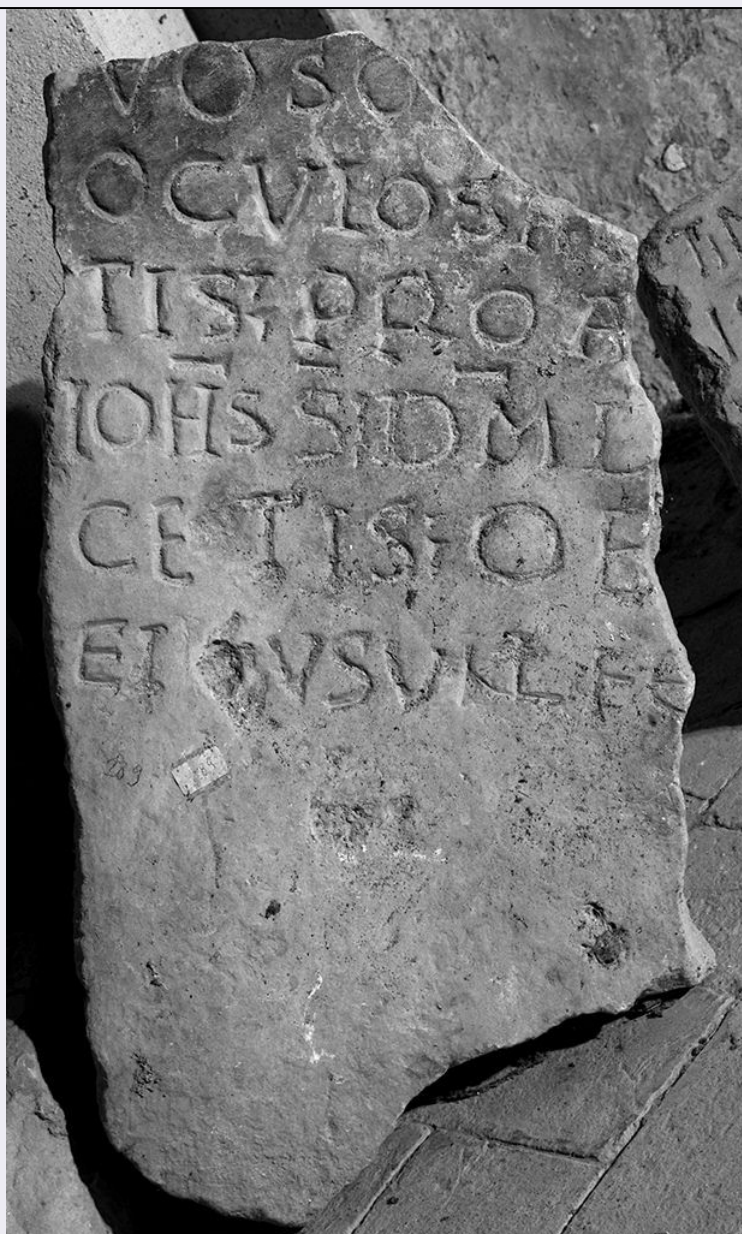 VOSO
OCVLOS
TIS; PRO A
IOHS SIDM L
CETIS; OB
EI VSVKL FE
289